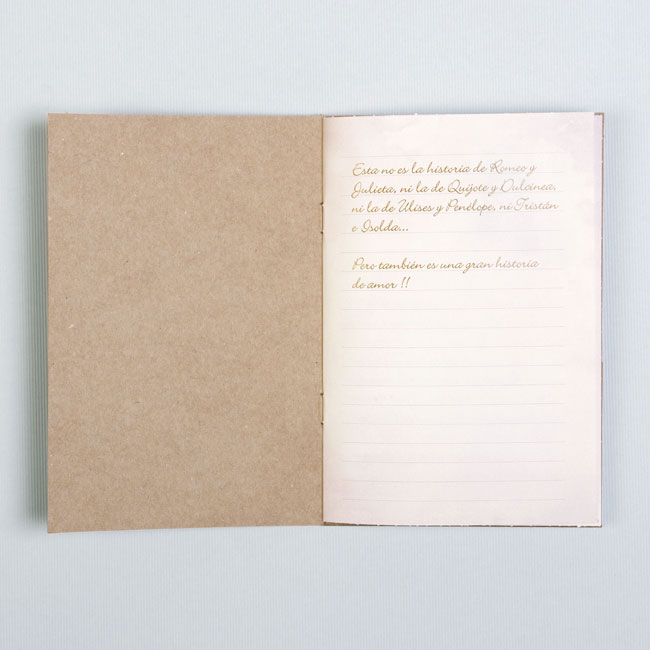 Esta no es la historia de Romeo y
Julieta, ni la de Quijote y Dulcinea,
ni la de Ulises y Penélope, ni Tristán
e Isolda...
Pero también es una gran historia
de amor !!